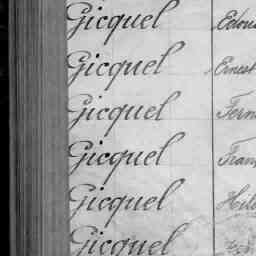 Gicquel Edou
Gicquel Ernest
Gicquel Fern
Gicquel Fran
Gicquel Hil
Gicquel